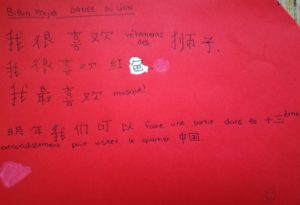 Projet DANSE DU LION
我 很 喜 欢 vêtements des 狮 子.
我 很 喜 欢 红 色
我 最 喜 欢 musique!
明 年 我 们 可 以 faire une sortie dans le 十 三 ème
arrondissement pour visiter le quartier 中国.